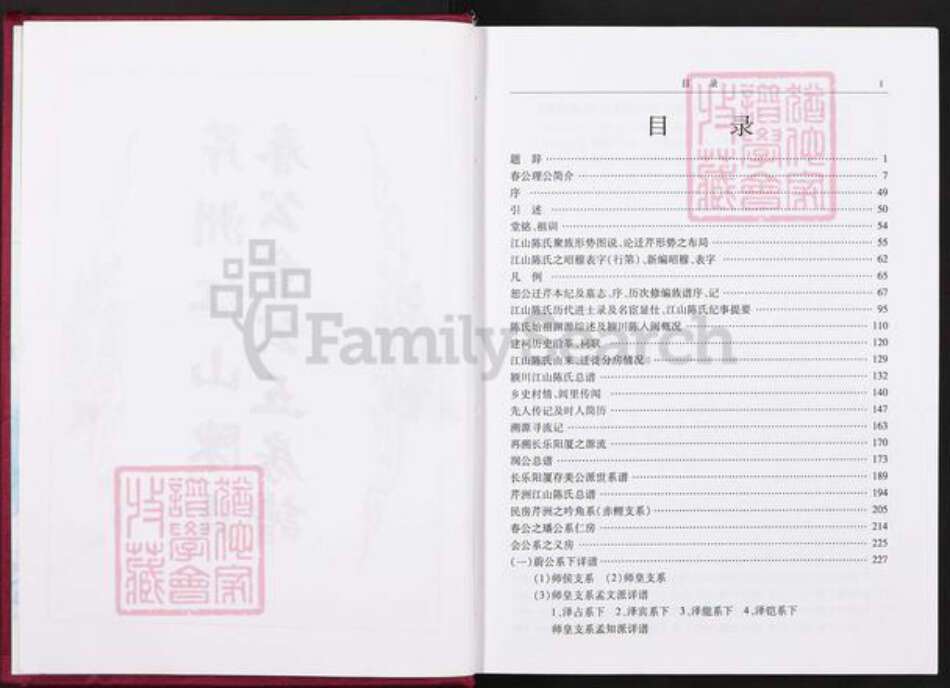 目 录 1
目 录
题 辞 1
春公理公简介 7
序 49
引 述 50
堂铭、祖训 54
江山陈氏聚族形势图说、论迁芹形势之布局 55
江山陈氏之昭穆表字(行第)、新编昭穆、表字 62
凡 例 65
恕公迁芹本纪及墓志、序、历次修编族谱序、记 67
江山陈氏历代进士录及名宦显仕、江山陈氏纪事提要 95
陈氏始祖溯源综述及颍川陈入闽概况 110
建祠历史沿革、祠联 120
江山陈氏由来、迁徙分房情况 129
颍川江山陈氏总谱 132
乡史村情、闾里传闻 140
先人传记及时人简历 147
溯源寻流记 163
再溯长乐阳厦之源流 170
润公总谱 173
长乐阳厦存美公派世系谱 189
芹洲江山陈氏总谱 194
民房芹洲之吟角系(赤鲤支系) 205
春公之璠公系仁房 214
会公系之义房 225
(一)蔚公系下详谱 227
(1)师侯支系 (2)师皇支系
(3)师皇支系孟文派详谱
1、泽占系下 2、泽宾系下 3、泽能系下 4、泽铠系下
师皇支系孟知派详谱
FamilySearch